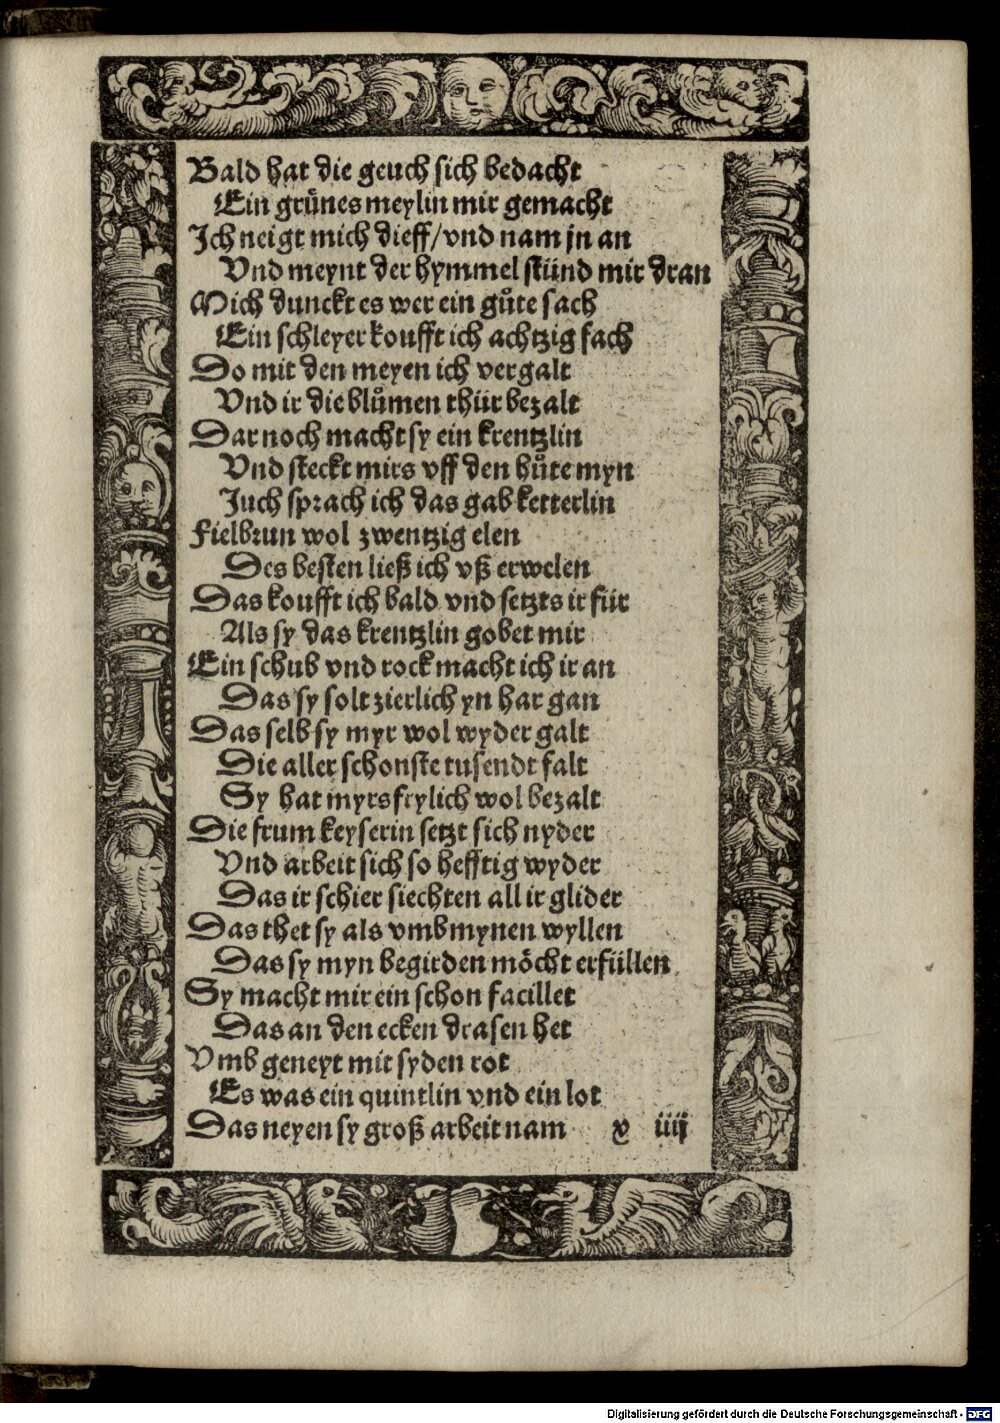 Bald hat die geuch sich bedacht
Ein grůnes meylin mir gemacht
Ich neigt mich dieff/vnd nam jn an
Vnd meynt der hymmel stünd mir dran
Mich dunckt es wer ein gůte sach
Ein schleyer koufft ich achtzig fach
Do mit den meyen ich vergalt
Vnd ir die blůmen thür bezalt
Dar noch macht sy ein krentzlin
Vnd steckt mirs vff den hůte myn
Juch sprach ich das gab ketterlin
Fielbrun wol zwentzig elen
Des besten ließ ich vß erwelen
Das koufft ich bald vnd setzts ir für
Als sy das krentzlin gobet mir
Ein schub vnd rock macht ich ir an
Das sy solt zierlich yn har gan
Das selb sy myr wol wyder galt
Die aller schonste tusendt falt
Sy hat myrs frylich wol bezalt
Die frum keyserin setzt sich nyder
Vnd arbeit sich so hefftig wyder
Das ir schier siechten all ir glider
Das thet sy als vmb mynen wyllen
Das sy myn begirden möcht erfüllen
Sy macht mir ein schon facillet
Das an den ecken drasen het
Vmb geneyt mit syden rot
Es was ein quintlin vnd ein lot
Das neyen sy groß arbeit nam y iiij
Digitalisierung gefördert durch die Deutsche Forschungsgemeinschaft - DFG